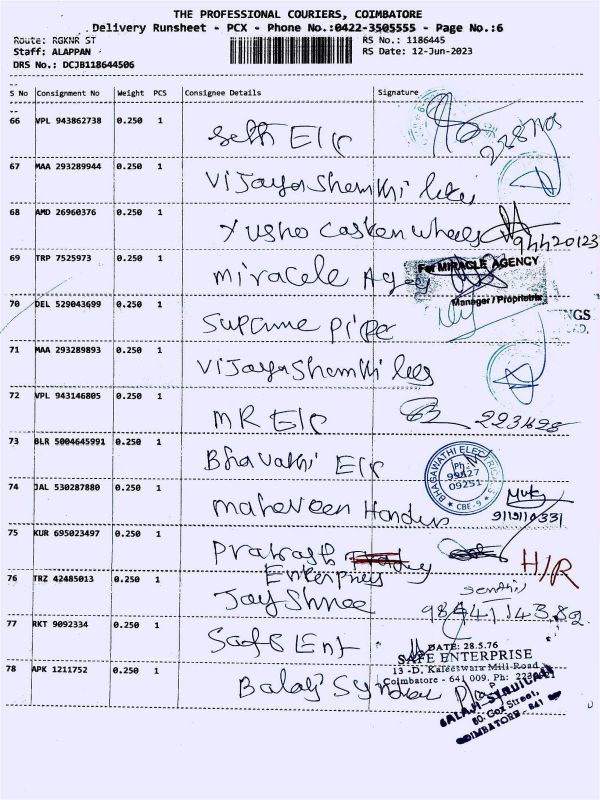 THE PROFESSIONAL COURIERS, COIMBATORE
Delivery Runsheet - PCX - Phone No.:0422-3505555 - Page No.:6
Route: RGKNR ST RS No.: 1186445
Staff: ALAPPAN RS Date: 12-Jun-2023
DRS No.: DCJB118644506
S No Consignment No Weight PCS Consignee Details Signature
66 VPL 943862738 0.250 1
Seth Elc
67 MAA 293289944 0.250 1
Vijayashanthi
68 AMD 26960376 0.250 1
Yusho wheels 94420123
69 TRP 7525973 0.250 1
miracele Agency For MIRACLE AGENCY
Manager / Proprietrix
70 DEL 529043699 0.250 1
Supreme Pipe NGS
71 MAA 293289893 0.250 1
Vijayashanthi
72 VPL 943146805 0.250 1
MR Elc
73 BLR 5004645991 0.250 1
Bhavathi Elc BHAGAWATHI ELECTRICALS
Ph:
99427
09251
CBE-9
74 JAL 530287880 0.250 1
75 KUR 695023497 0.250 1
Prakash H/R
Enterprises
76 TRZ 42485013 0.250 1
Jay Shree
77 RKT 9092334 0.250 1
Safe Ent DATE: 28.5.76
SAFE ENTERPRISE
13 -D, Kaleeswara Mill Road
Coimbatore - 641 009. Ph:
78 APK 1211752 0.250 1
Balaji BALAJI SYNDICATE
80, Gox Street,
COIMBATORE - 641